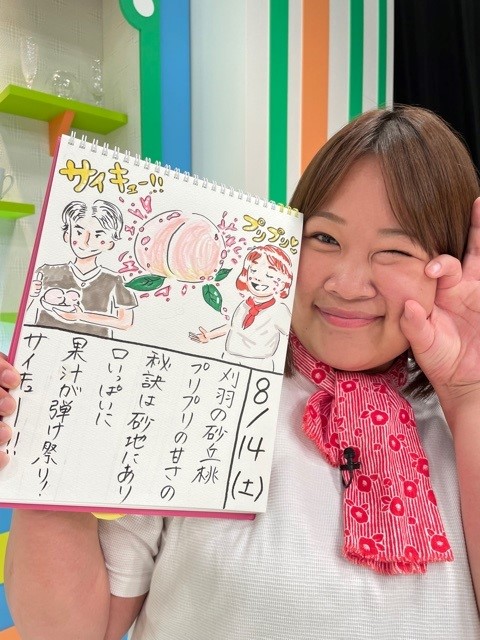 サイキュー!!
プリプリ♡
8/14(土)
刈羽の砂丘桃
プリプリの甘さの
秘訣は砂地にあり
口いっぱいに
果汁が弾け祭り!
サイキューー!!